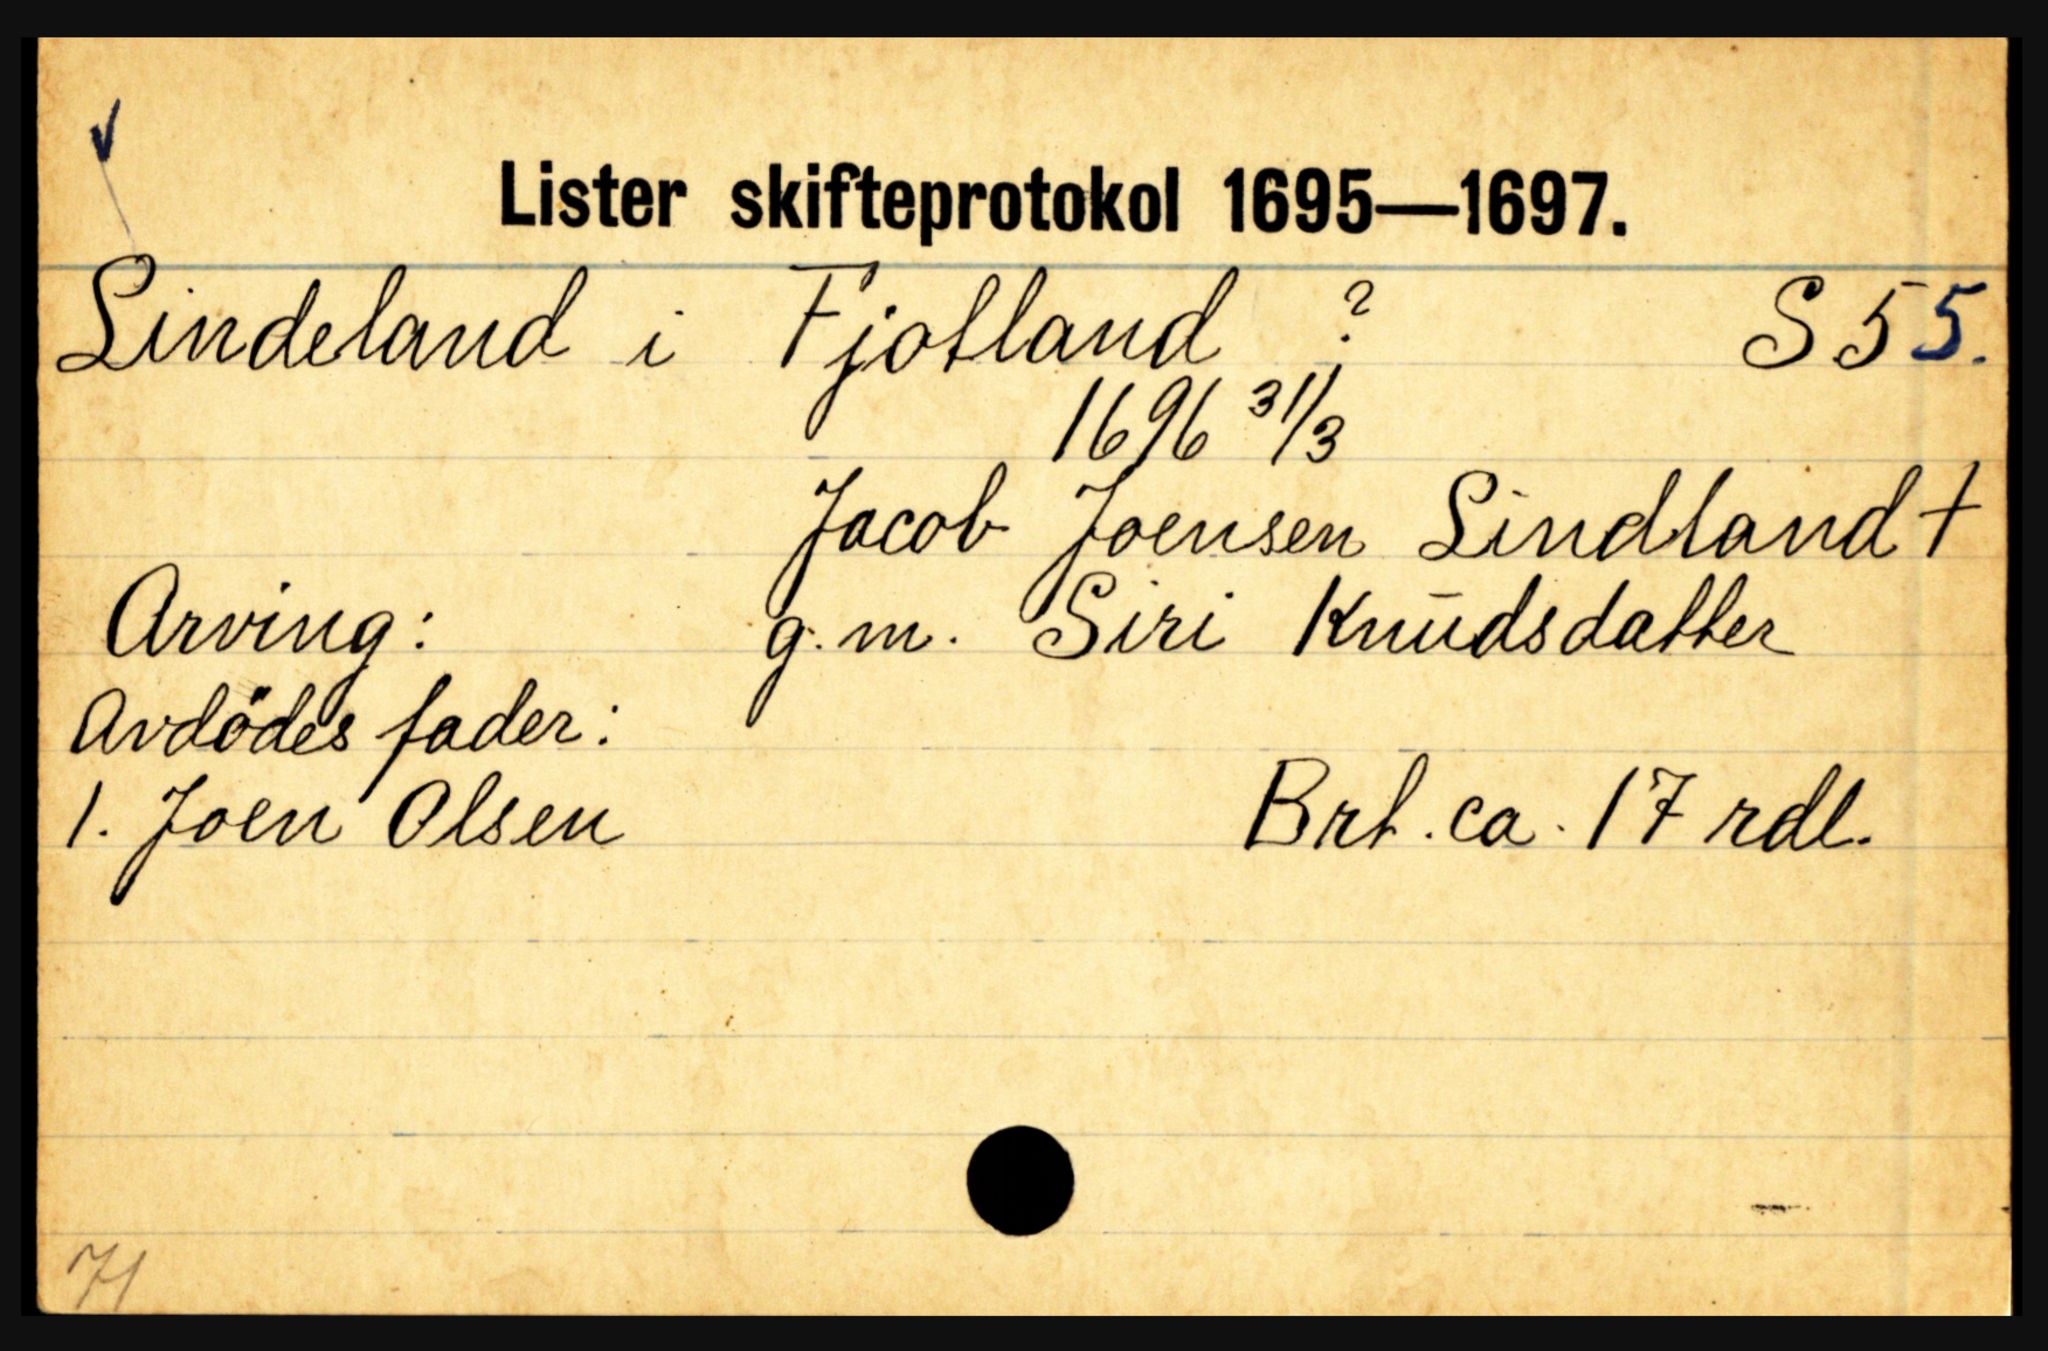 v
Lister skifteprotokol 1695—1697.
Lindeland i Fjotland ? S 55.
1696 31/3
Jacob Joensen Lindland †
Arving: g. m. Siri Knūdsdatter
Avdödes fader:
1. Joen Olsen Brt. ca. 17 rdl.
71